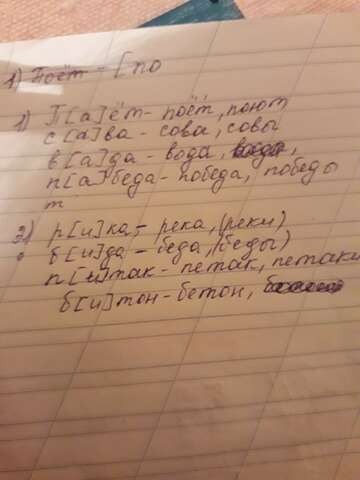 1) Поёт = [по
1) П[а]ёт - поёт, поют
с[а]ва - сова, совы
в[а]да - вода,
п[а]беда - победа, победы
т
2) р[и]ка - река, (реки)
б[и]да - беда, (беды)
п[и]так - петак, петаки
б[и]тон - бетон,